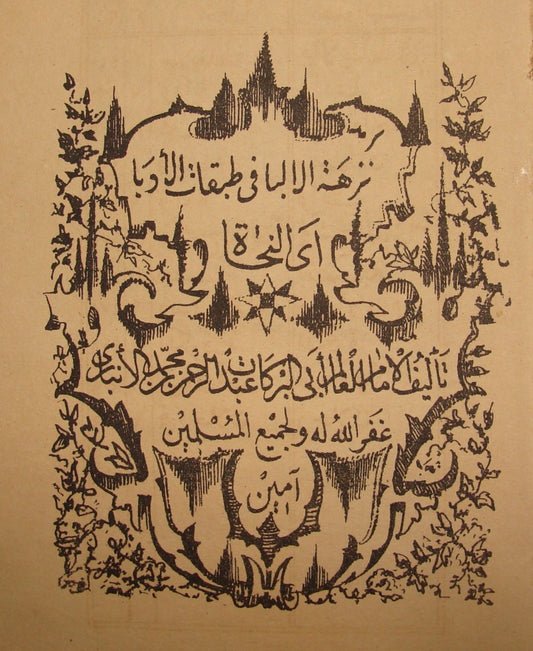 نزهة الالبا فى طبقات الأدبا
اى النحاة
تأليف الامام العالم أبى البركات عبد الرحمن بن محمد الأنبارى
غفر الله له ولجميع المسلمين
آمين